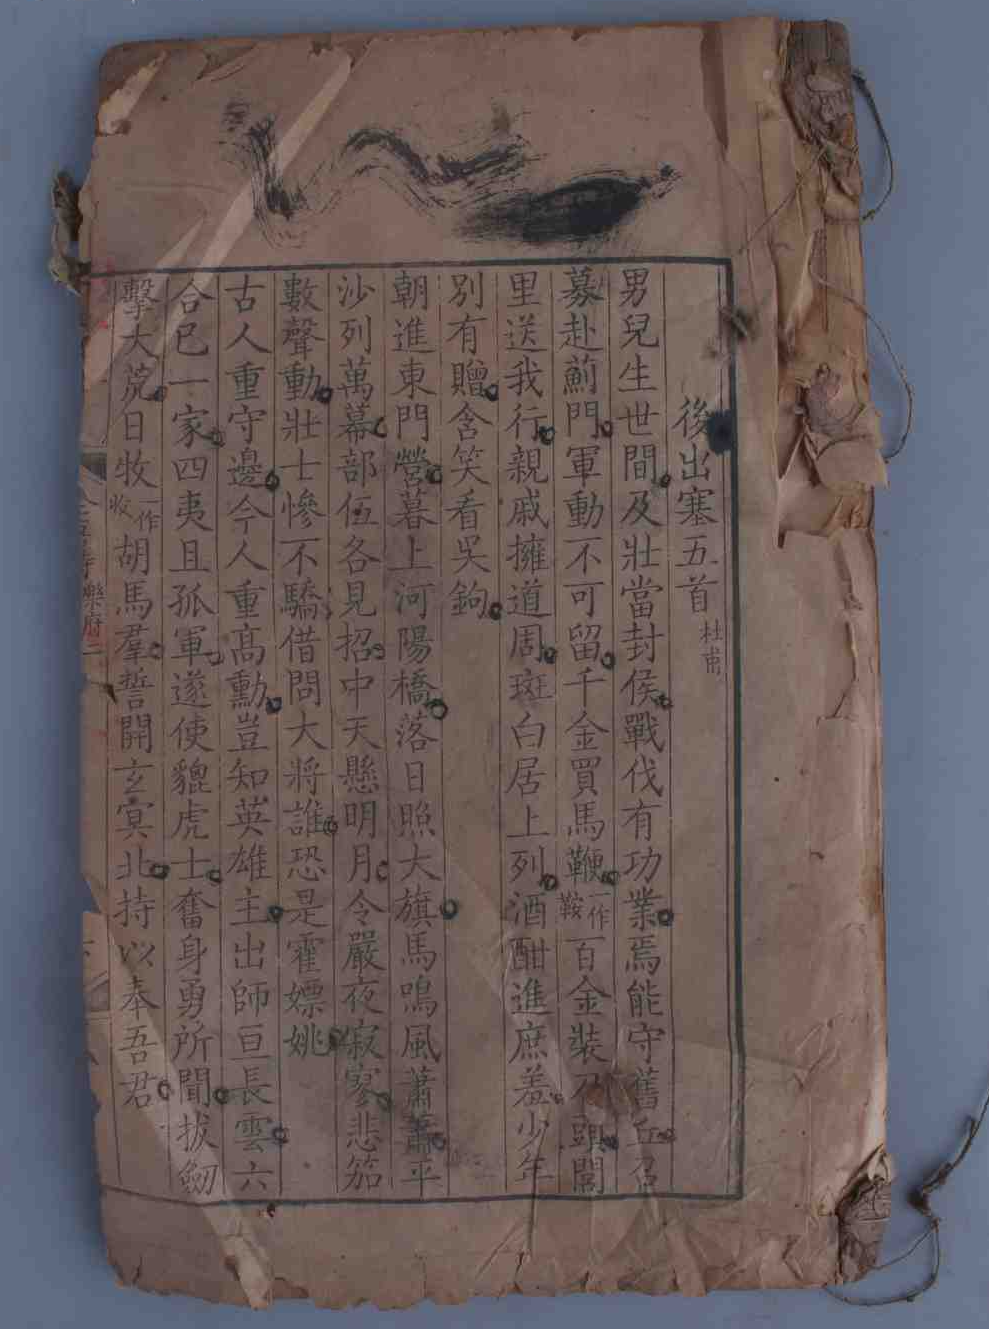 後出塞五首 杜甫
男兒生世間及壯當封侯戰伐有功業焉能守舊丘召
募赴薊門軍動不可留千金買馬鞭一作鞍百金裝刀頭閭
里送我行親戚擁道周斑白居上列酒酣進庶羞少年
別有贈含笑看吳鉤
朝進東門營暮上河陽橋落日照大旗馬鳴風蕭蕭平
沙列萬幕部伍各見招中天懸明月令嚴夜寂寥悲笳
數聲動壯士慘不驕借問大將誰恐是霍嫖姚
古人重守邊今人重高勳豈知英雄主出師亘長雲六
合已一家四夷且孤軍遂使貔虎士奮身勇所聞拔劒
擊大荒日牧一作收胡馬羣誓開玄冥北持以奉吾君
樂府二